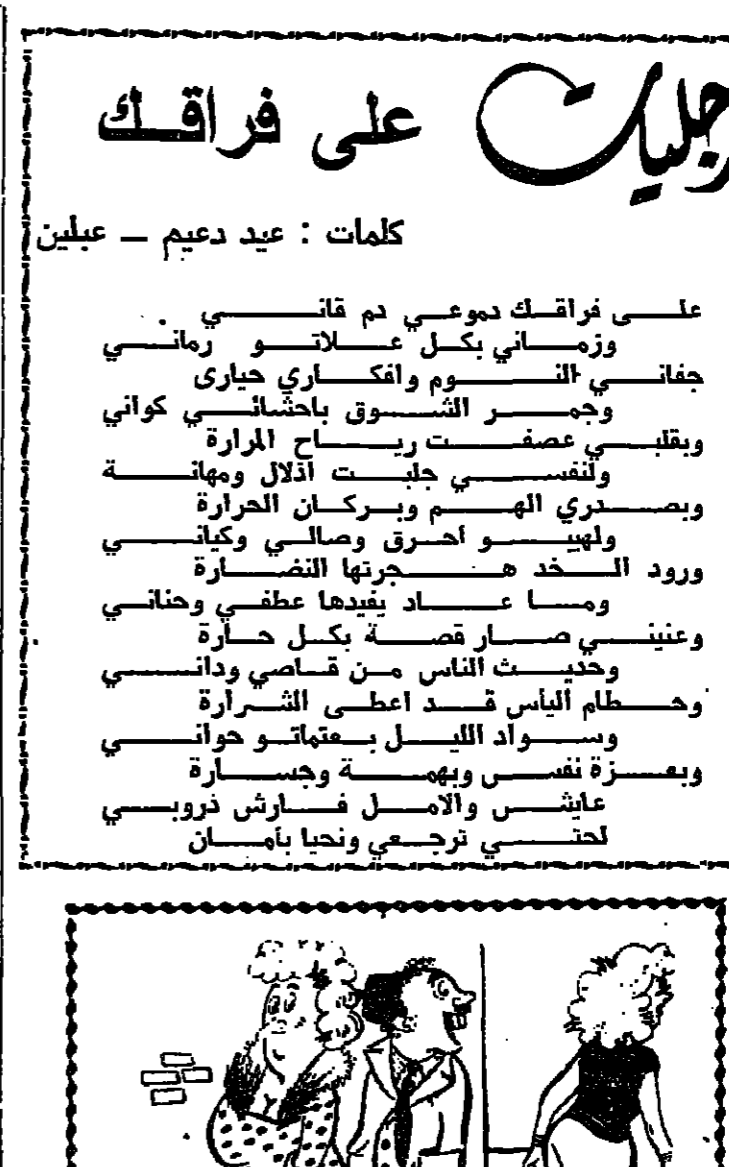 زجليات
على فراقك
كلمات : عيد دعيم – عبلين
على فراقك دموعي دم قاني
وزماني بكل علاتو رماني
جفاني النوم وافكاري حيارى
وجمر الشوق باحشائي كواني
وبقلبي عصفت رياح المرارة
ولنفسي جلبت اذلال ومهانة
وبصدري الهم وبركان الحرارة
ولهيبو احرق وصالي وكياني
ورود الخد هجرتها النضارة
وما عاد يفيدها عطفي وحناني
وعنيني صار قصة بكل حارة
وحديث الناس من قاصي وداني
وحطام اليأس قد اعطى الشرارة
وسواد الليل بعتماتو حواني
وبعزة نفس وبهمة وجسارة
عايش والامل فارش دروبي
لحتي ترجعي ونحيا بأمان